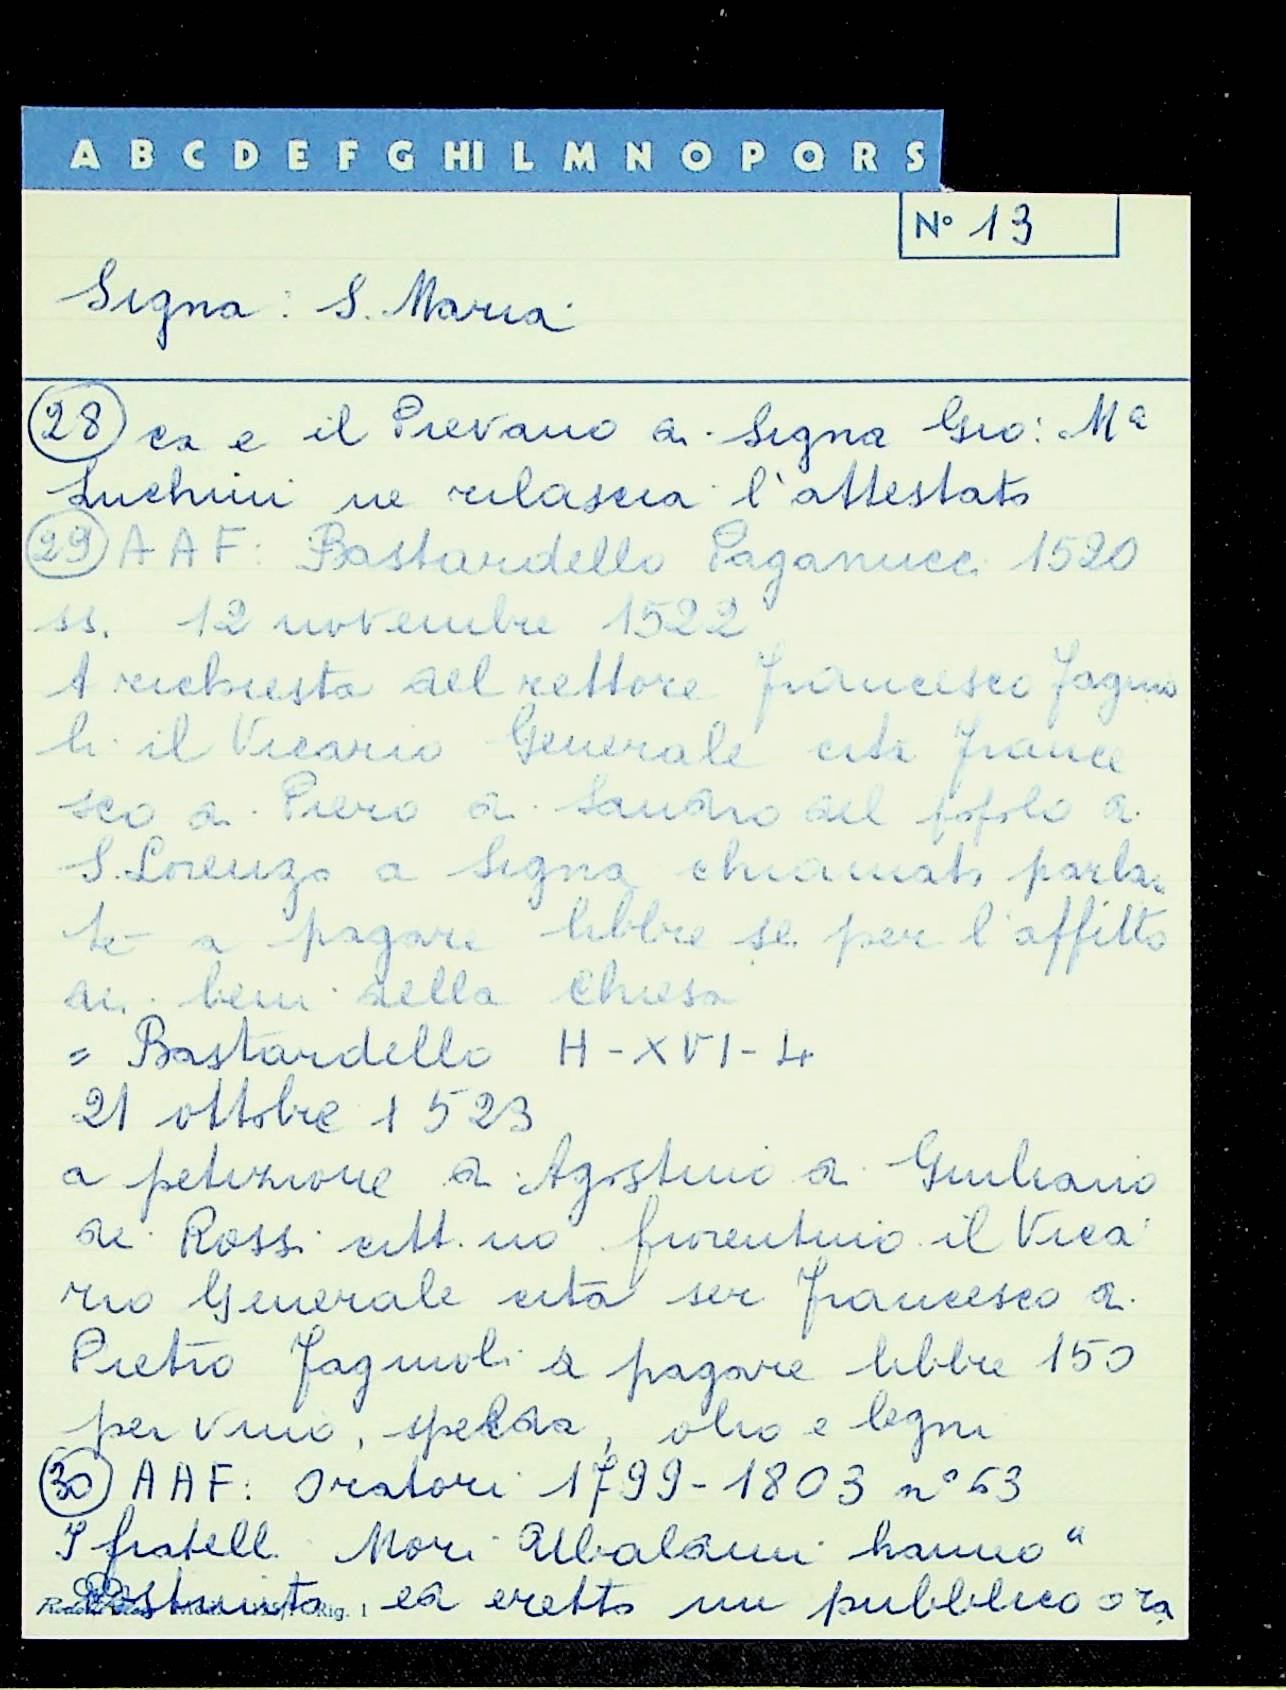 A B C D E F G HI L M N O P Q R S
Nº 13
Signa: S. Maria
28 ca e il Pievano di Signa Gio: Mª
Luchini ne rilascia l'attestato
29 AAF: Bastardello Paganucci 1520
ss. 12 novembre 1522
A richiesta del rettore Francesco Fagnio
li il Vicario Generale cita France
sco di Piero di Sandro del popolo di
S. Lorenzo a Signa chiamato parlan
te a pagare libbre sei per l'affitto
di beni della Chiesa
= Bastardello H-XVI-4
21 ottobre 1523
a petizione di Agostino di Giuliano
de Rossi citt.no fiorentino il Vica
rio Generale cita ser Francesco di
Pietro Fagnioli a pagare libbre 150
per vino, spelda, olio e legni
30 AAF: Oratori 1799-1803 nº 53
I fratelli Mori Ubaldini hanno "
costruito ed eretto un pubblico ora
Rig. 1